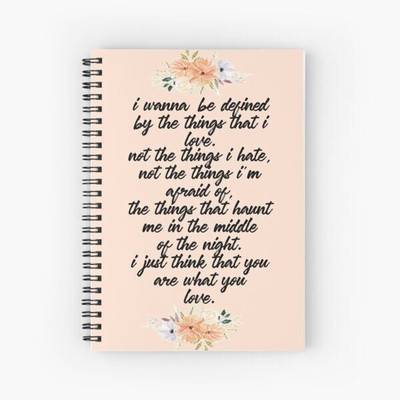 i wanna be defined
by the things that i
love.
not the things i hate,
not the things i'm
afraid of,
the things that haunt
me in the middle
of the night.
i just think that you
are what you
love.